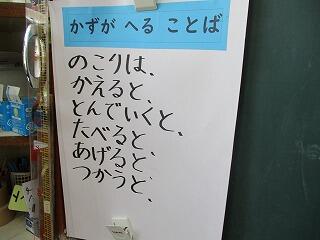 かずが へる ことば
のこりは、
かえると、
とんでいくと、
たべると、
あげると、
つかうと、